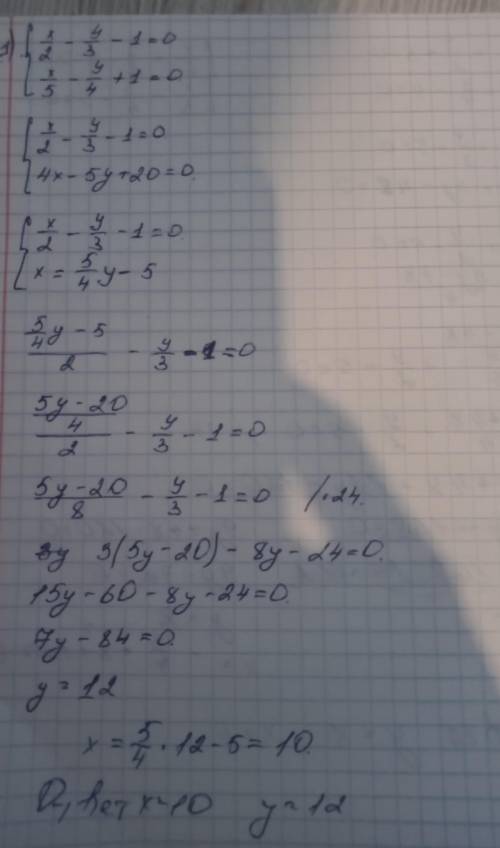 1) { x/2 - y/3 - 1 = 0
x/5 - y/4 + 1 = 0
{ x/2 - y/3 - 1 = 0
4x - 5y + 20 = 0.
{ x/2 - y/3 - 1 = 0
x = 5/4 y - 5
(5/4 y - 5)/2 - y/3 - 1 = 0
((5y - 20)/4)/2 - y/3 - 1 = 0
(5y - 20)/8 - y/3 - 1 = 0 /·24.
3y 3(5y - 20) - 8y - 24 = 0.
15y - 60 - 8y - 24 = 0.
7y - 84 = 0.
y = 12
x = 5/4 · 12 - 5 = 10.
Ответ x = 10 y = 12